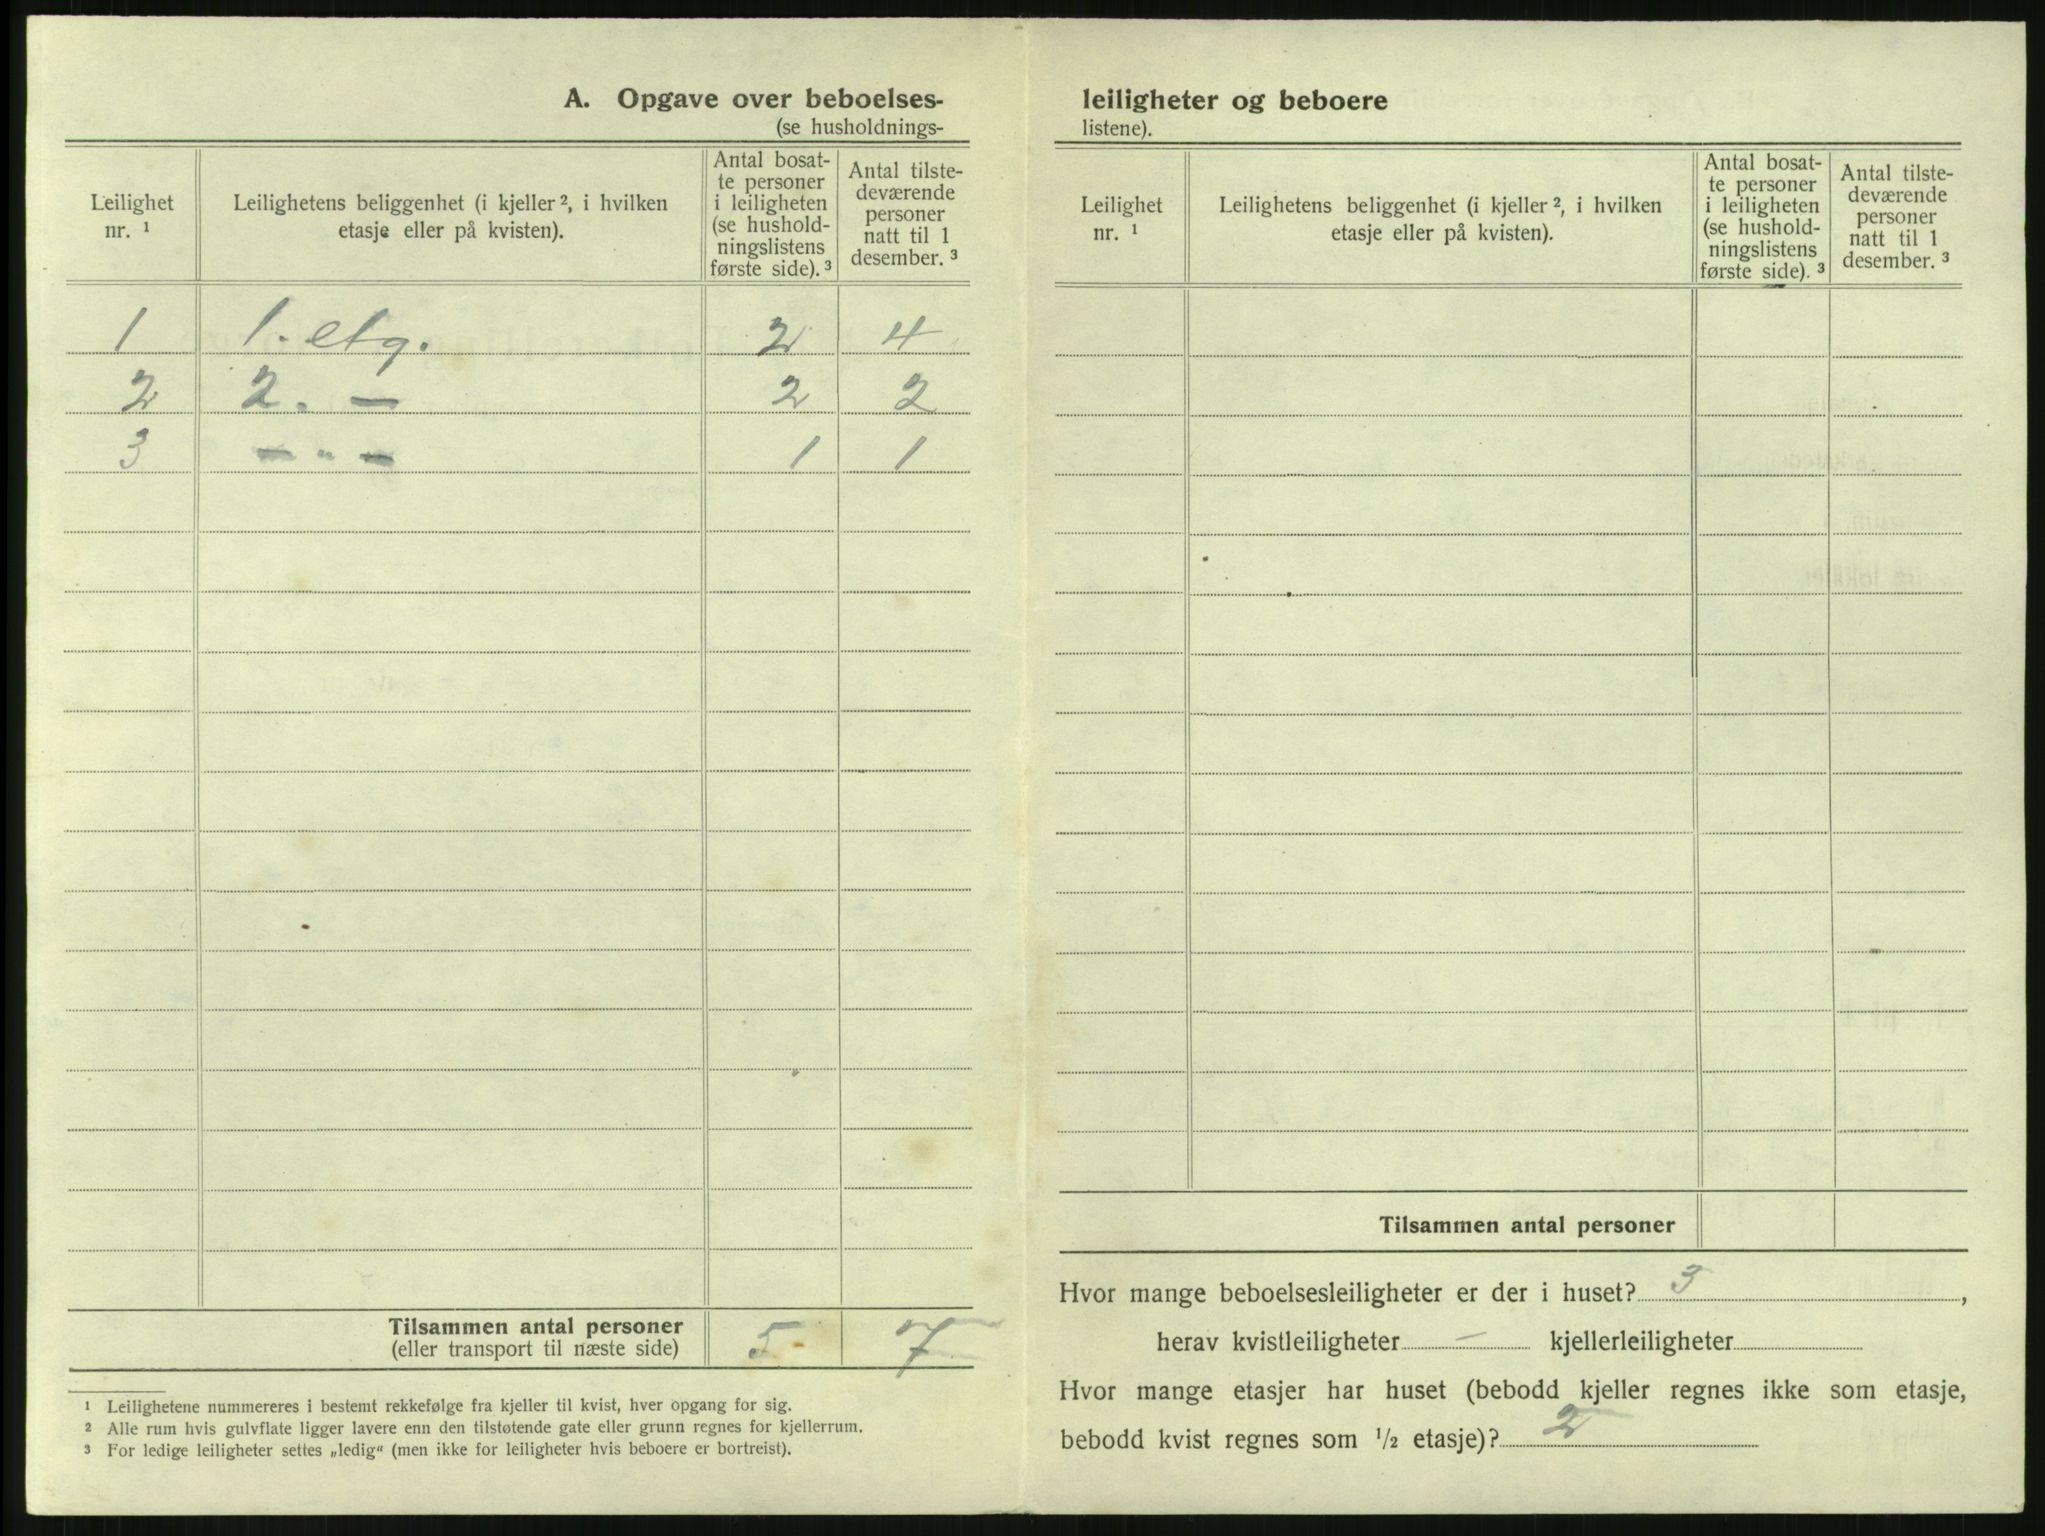 A. Opgave over beboelses-
(se husholdnings-
Leilighet
nr. ¹
Leilighetens beliggenhet (i kjeller ², i hvilken
etasje eller på kvisten).
Antal bosat-
te personer
i leiligheten
(se hushold-
ningslistens
første side). ³
Antal tilste-
deværende
personer
natt til 1
desember. ³
1 1. etg. 2 4
2 2. — 2 2
3 — " — 1 1
Tilsammen antal personer 5 7
(eller transport til næste side)
¹ Leilighetene nummereres i bestemt rekkefølge fra kjeller til kvist, hver opgang for sig.
² Alle rum hvis gulvflate ligger lavere enn den tilstøtende gate eller grunn regnes for kjellerrum.
³ For ledige leiligheter settes „ledig“ (men ikke for leiligheter hvis beboere er bortreist).
leiligheter og beboere
listene).
Leilighet
nr. ¹
Leilighetens beliggenhet (i kjeller ², i hvilken
etasje eller på kvisten).
Antal bosat-
te personer
i leiligheten
(se hushold-
ningslistens
første side). ³
Antal tilste-
deværende
personer
natt til 1
desember. ³
Tilsammen antal personer
Hvor mange beboelsesleiligheter er der i huset? 3,
herav kvistleiligheter — kjellerleiligheter
Hvor mange etasjer har huset (bebodd kjeller regnes ikke som etasje,
bebodd kvist regnes som ½ etasje)? 2